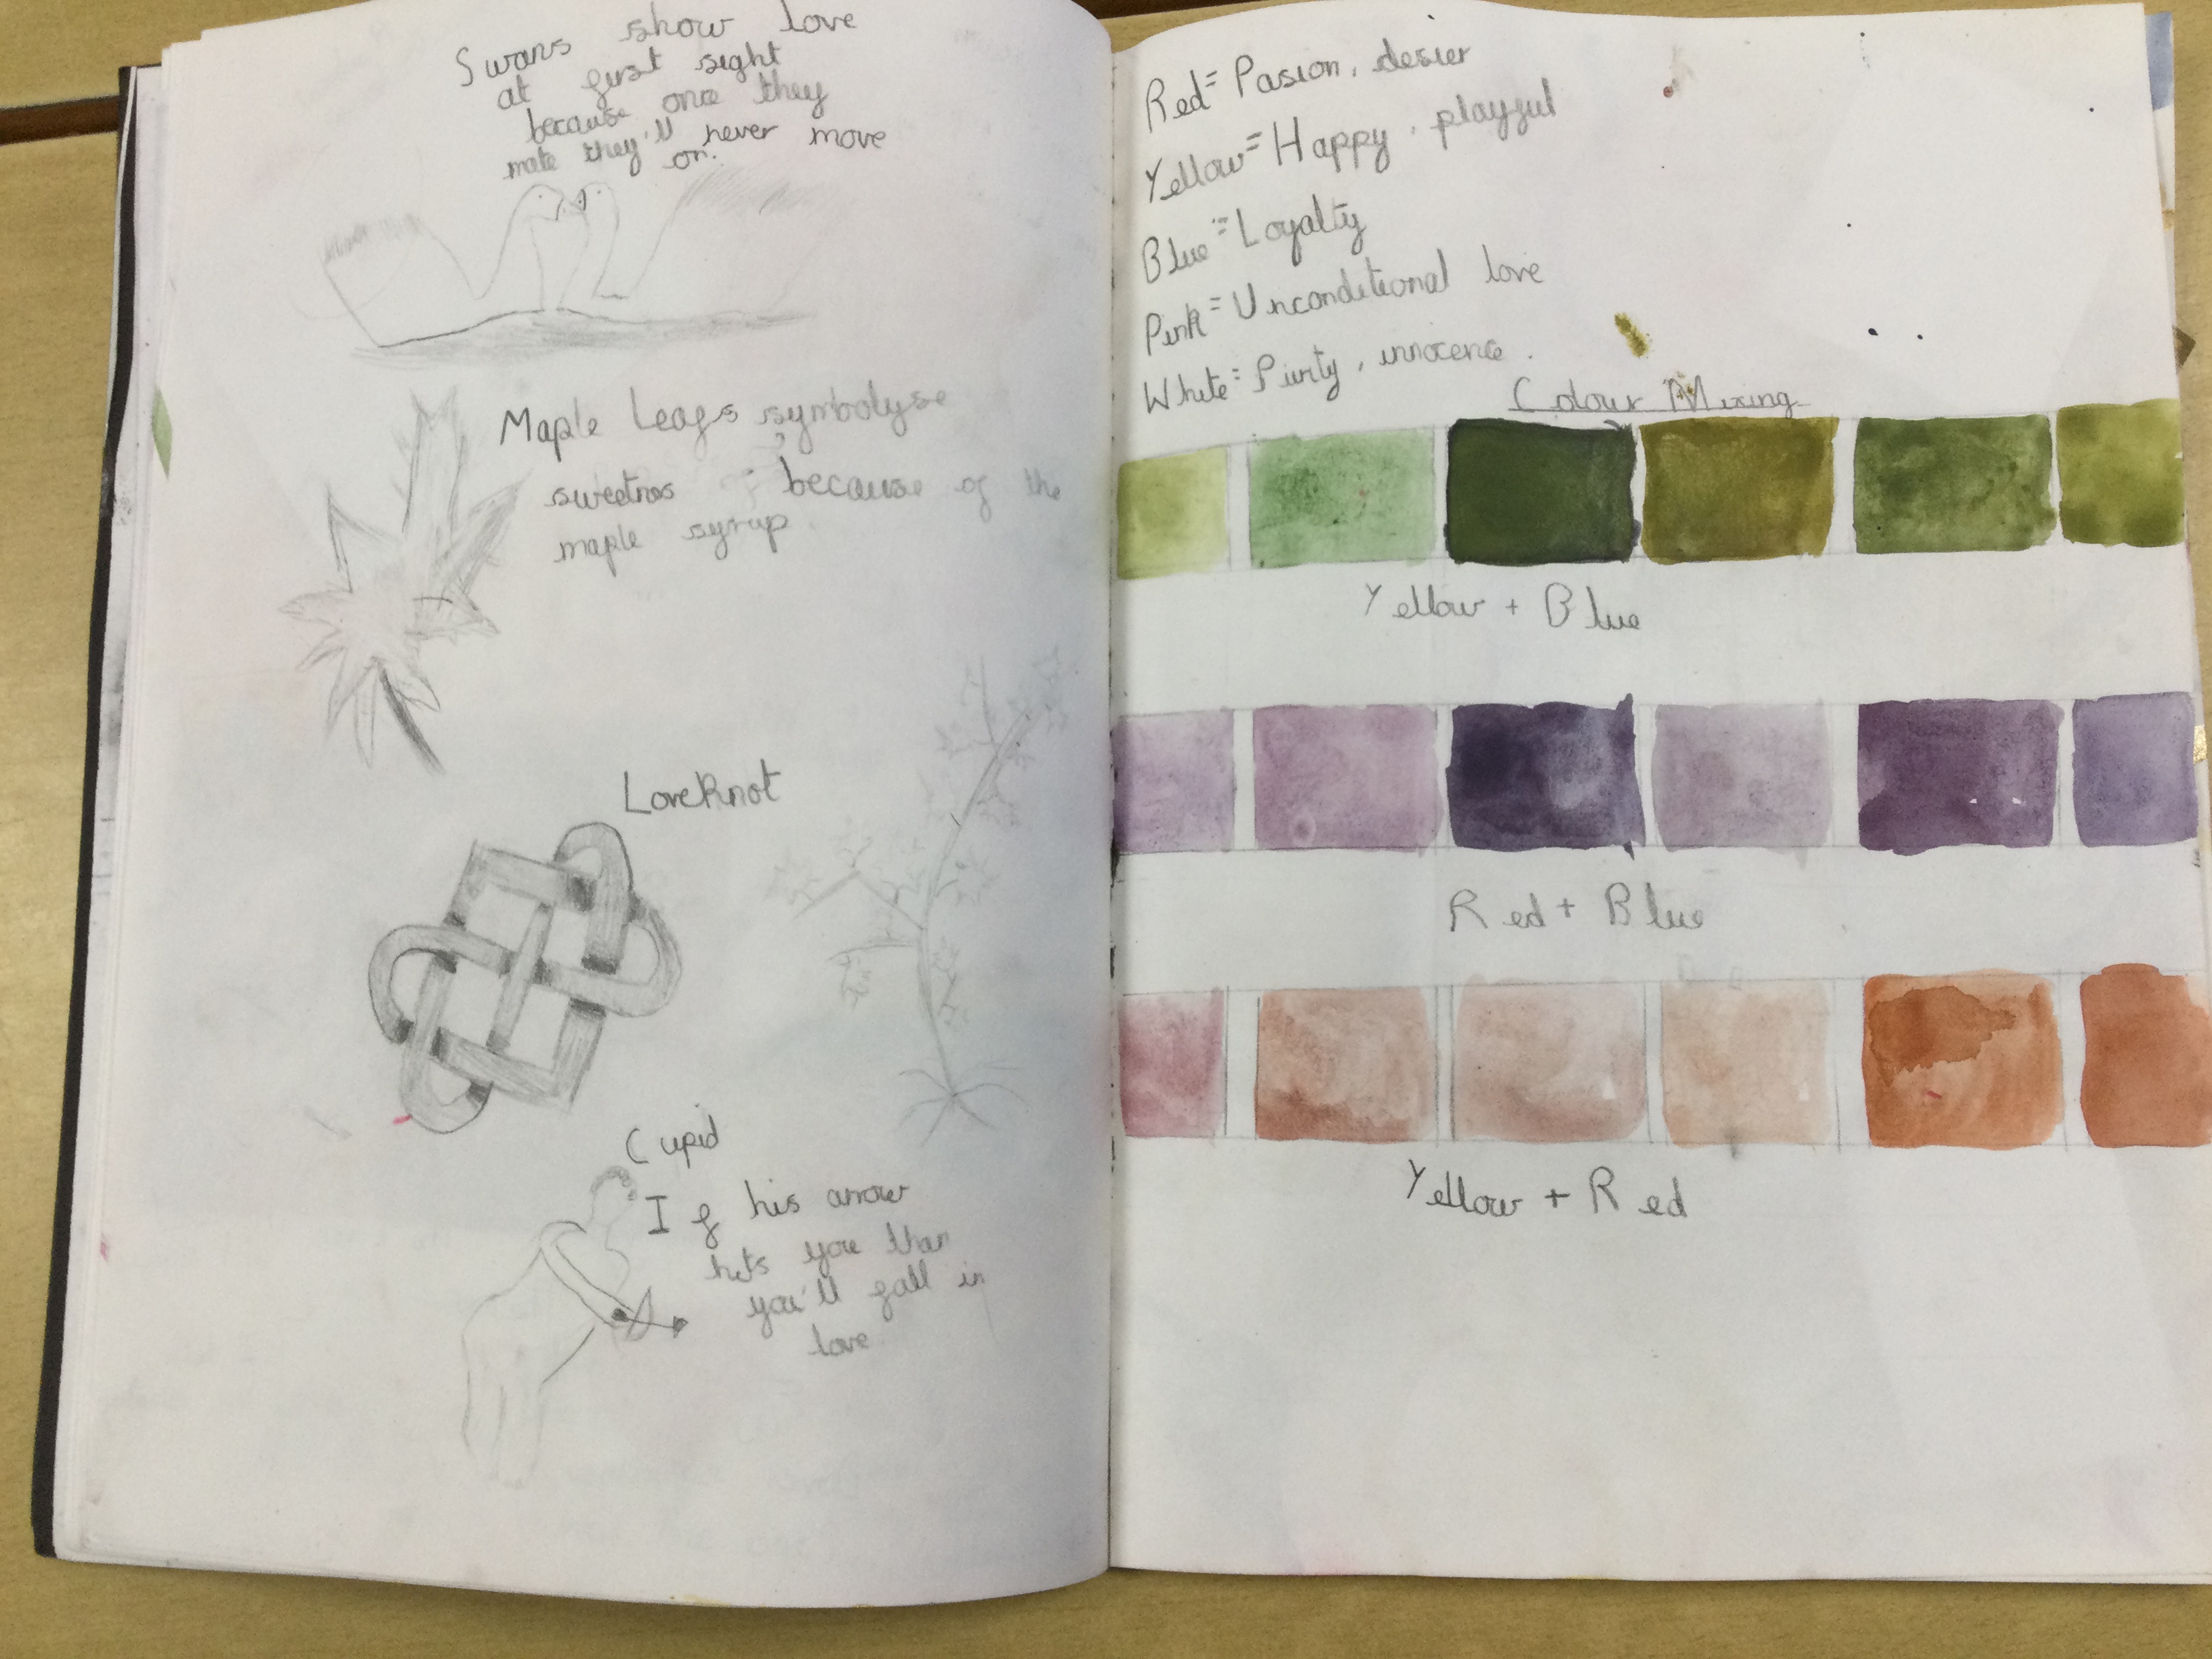 Swans show love
at first sight
because once they
mate they'll never move
on.
Maple Leafs symbolyse
sweetnes because of the
maple syrup
Love Knot
Cupid
If his arrow
hits you than
you'll fall in
love
Red = Pasion, desier
Yellow = Happy, playful
Blue = Loyalty
Pink = Unconditional love
White = Purity, innocence.
Colour Mixing
Yellow + Blue
Red + Blue
Yellow + Red